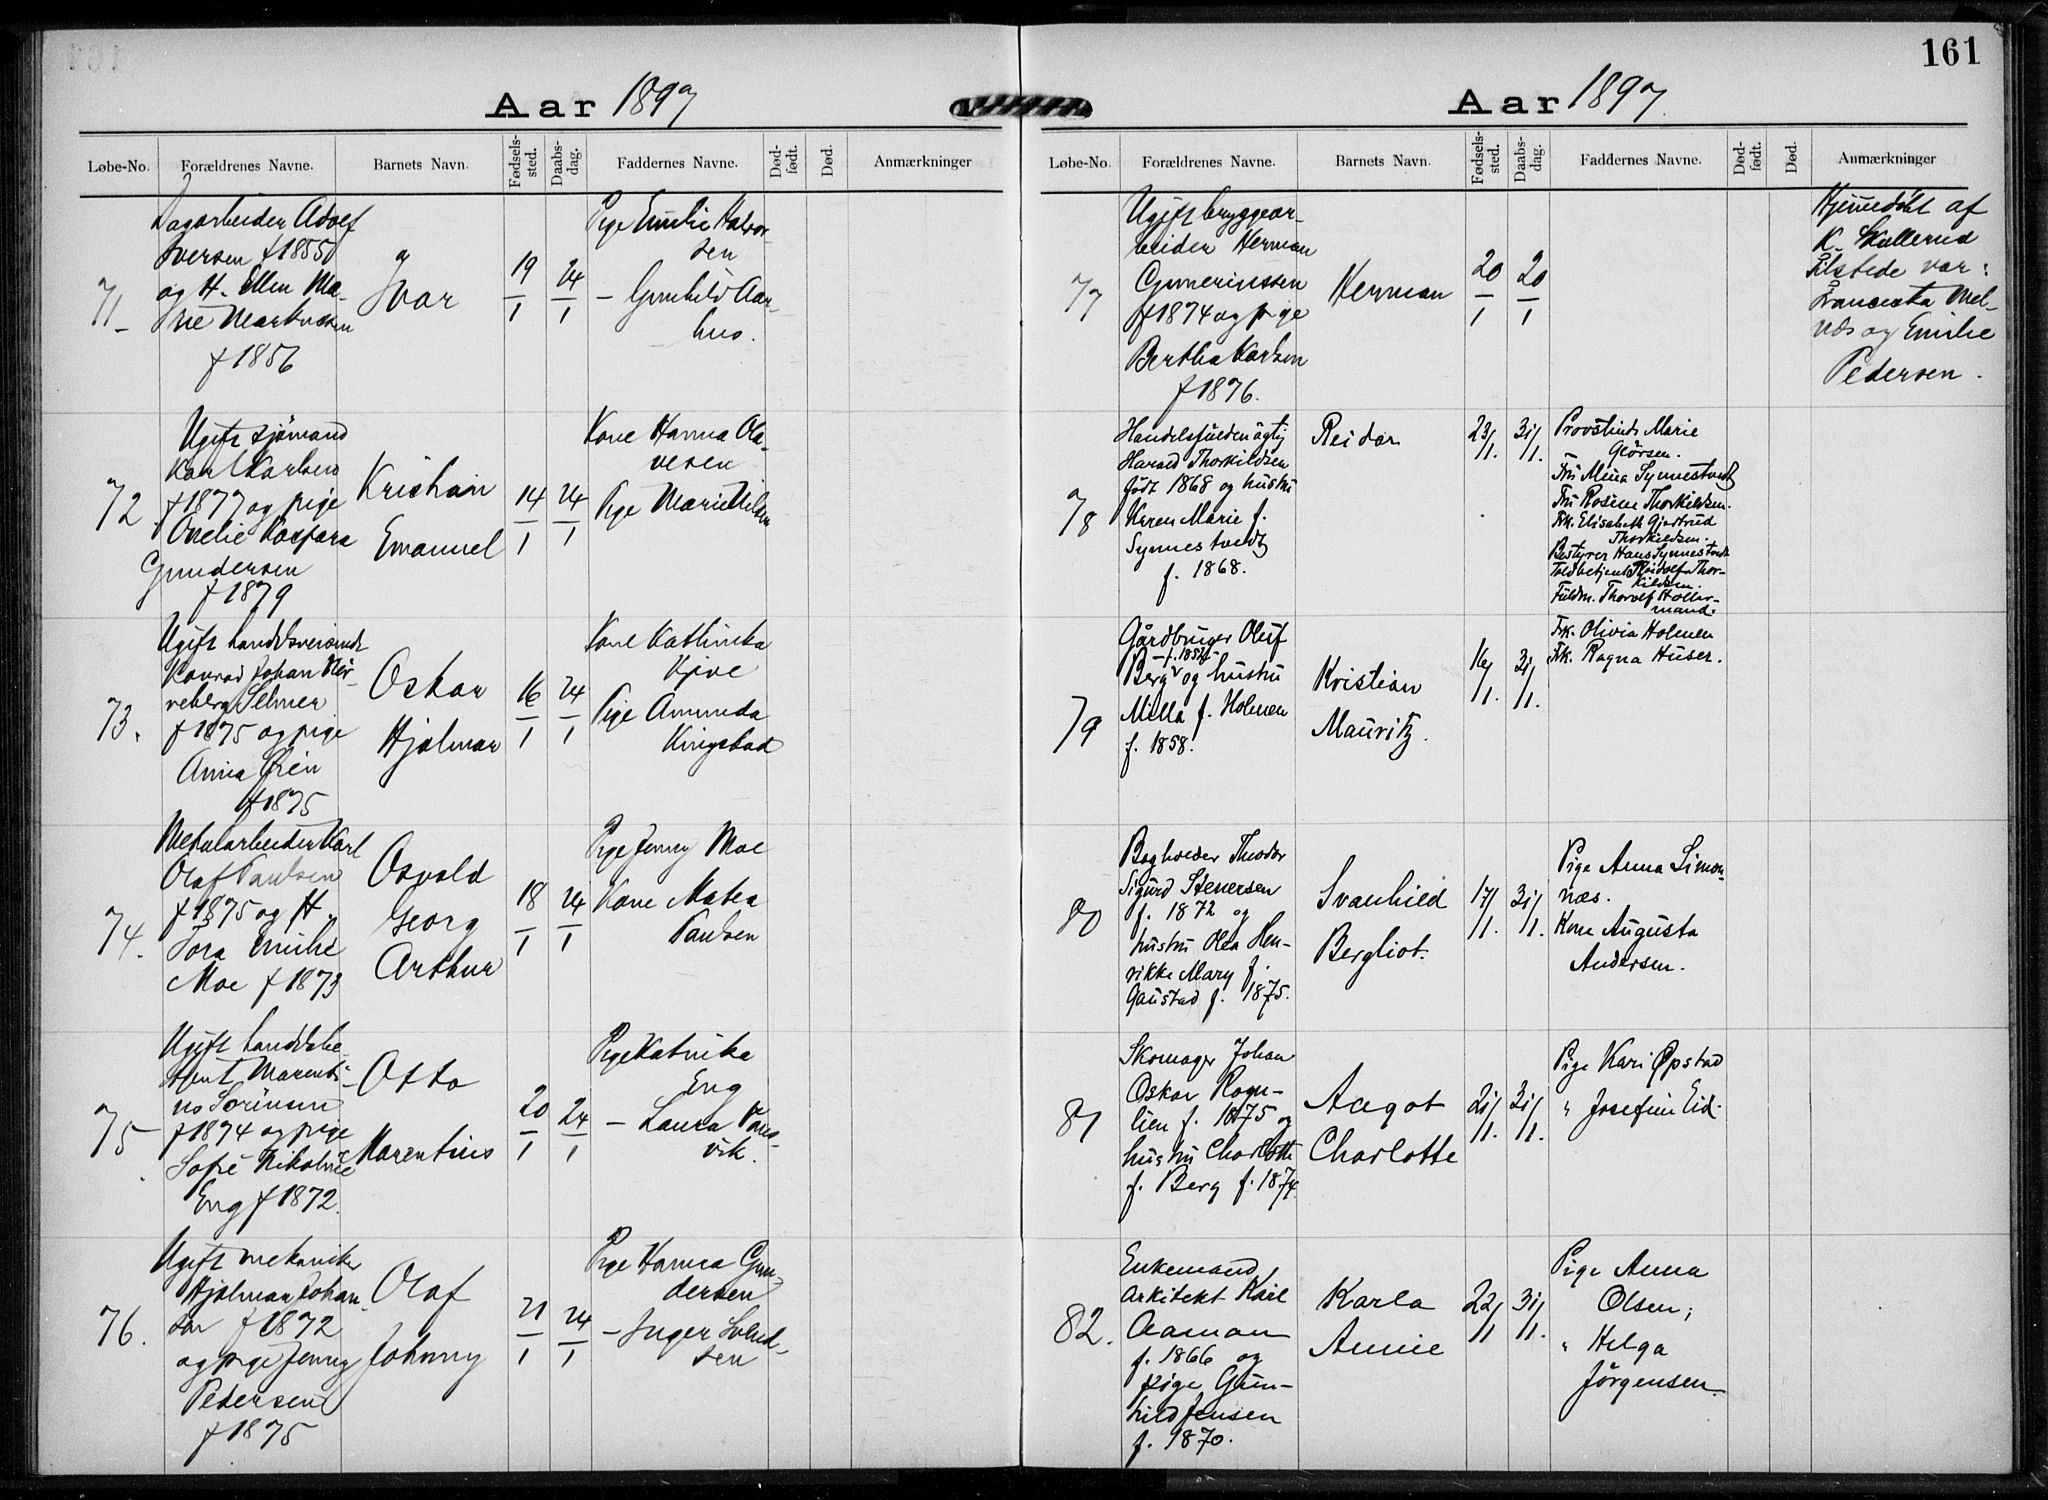 161
Aar 1897
Løbe-No.
Forældrenes Navne.
Barnets Navn.
Fødsels-
sted.
Daabs-
dag.
Faddernes Navne.
Død-
født.
Død.
Anmærkninger
71
Dagarbeider Adolf
Iversen f 1855
og H. Ellen Ma-
rie Markussen
f 1856
Ivar
19/1
24/1
Pige Emilie Halvor-
sen
- Gunhild Aar-
hus.
72.
Ugift sjømand
Karl Karlsen
f 1877 og pige
Kaspara
Gundersen
f 1879
Kristian
Emanuel
14/1
24/1
Kone Hanna Ola-
vesen
Pige Marie Nilsen
73.
Ugift handelsreisende
Konrad Johan
Selmer
f 1875 og pige
Anna
f 1875
Oskar
Hjalmar
16/1
24/1
Kone Kathinka
Pige Amunda
Ringstad
74.
Metalarbeider Karl
Olaf Paulsen
f 1875 og H.
Tora Emilie
Moe f 1873
Osvald
Georg
Arthur
18/1
24/1
Pige Jenny Moe
Kone Matea
Paulsen
75
Ugift handelsbe-
tjent Marenti-
us Sørensen
f 1874 og pige
Sofie Nikoline
Eng f 1872.
Otto
Marentius
20/1
24/1
Pige Katrika
Eng
- Laura
vik.
76.
Ugift mekaniker
Hjalmar Johan-
sen f 1872
og pige Jenny
Pedersen
f 1875
Olaf
Johnny
21/1
24/1
Pige Hanna Gun-
dersen
- Inger Svend-
sen
Aar 1897.
Løbe-No.
Forældrenes Navne.
Barnets Navn.
Fødsels-
sted.
Daabs-
dag.
Faddernes Navne.
Død-
født.
Død.
Anmærkninger
77
Ugift bryggear-
beider Herman
Guneriussen
f 1874 og pige
Bertha Karlsen
f 1876.
Herman
20/1
20/1
Hjemedøbt af
K. Skullerud
Tilstede var:
Franceska Mel-
næs og Emilie
Pedersen.
78
Handelsfuldmægtig
Harald Thorkildsen
født 1868 og hustru
Karen Marie f.
Synnestvedt
f. 1868.
Reidar
23/1.
31/1.
Provstinde Marie
Gløersen.
Fru Mina Synnestvedt
Fru Rosine Thorkildsen.
Frk. Elisabeth Gjertrud
Thorkildsen.
Bestyrer Hans Synnestvedt
Toldbetjent Reidolf Thor-
kildsen.
Fuldm. Thorolf Holter-
mand.
79
Gårdbruger Oluf
- f. 1857
Berg og hustru
Milla f. Holmen
f. 1858.
Kristian
Mauritz.
16/1.
31/1.
Frk. Olivia Holmen
Frk. Ragna Huser.
80
Bogholder Theodor
Sigurd Stenersen
f. 1872 og
hustru Olea Hen-
rikke Mary f.
Gaustad f. 1875.
Svanhild
Bergliot.
17/1.
31/1.
Pige Anna Simon-
næs.
Kone Augusta
Andersen.
81
Skomager Johan
Oskar Rogn-
lien f. 1875 og
hustru Charlotte
f. Berg f. 1874
Aagot
Charlotte
21/1.
31/1.
Pige Kari Opstad
" Josefine Eid.
82.
Enkemand,
Arkitekt Karl
Aaman
f. 1866 og
pige Gun-
hild Jensen
f. 1870.
Karla
Annie
22/1
31/1.
Pige Anna
Olsen;
" Helga
Jørgensen.